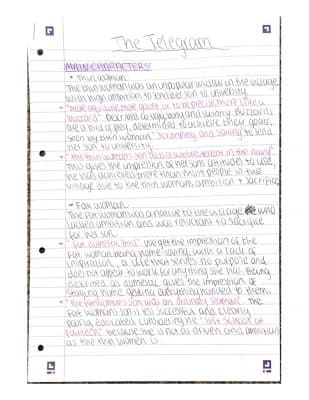 The Telegram
MAIN CHARACTERS:
- Thin woman:
The thin woman was an unpopular widow in the village
with high ambitions to send her son to university.
- "more aquiline, more gaunt, or to be precise, more like a
buzzard". Described as ugly, long and skinny. Buzzards
are a bird of prey, determined to achieve their goals,
seen by thin woman "scrimping and saving" to send
her son to university.
- "the thin woman's son was a sub-lieutenant in the navy"
This gives the impression of her son's attitude to life
he has achieved more than most people in the
village due to the thin woman's ambition + sacrifice
- Fat woman:
The fat woman was a native to the village who
lacked ambition and was reluctant to sacrifice
for her son.
- "Fat domestic bird". We get the impression of the
fat woman being home-loving, with a lack of
inspiration, a life that serves no purpose and
does not appear to work for anything she has. Being
described as domestic, gives the impression of
staying home getting everything handed to them.
- "the fat woman's son was an ordinary seaman". The
fat woman's son is less successful and clearly
poorly educated considering he "left school at
fifteen" because she is not as driven and ambitious
as the thin women is.